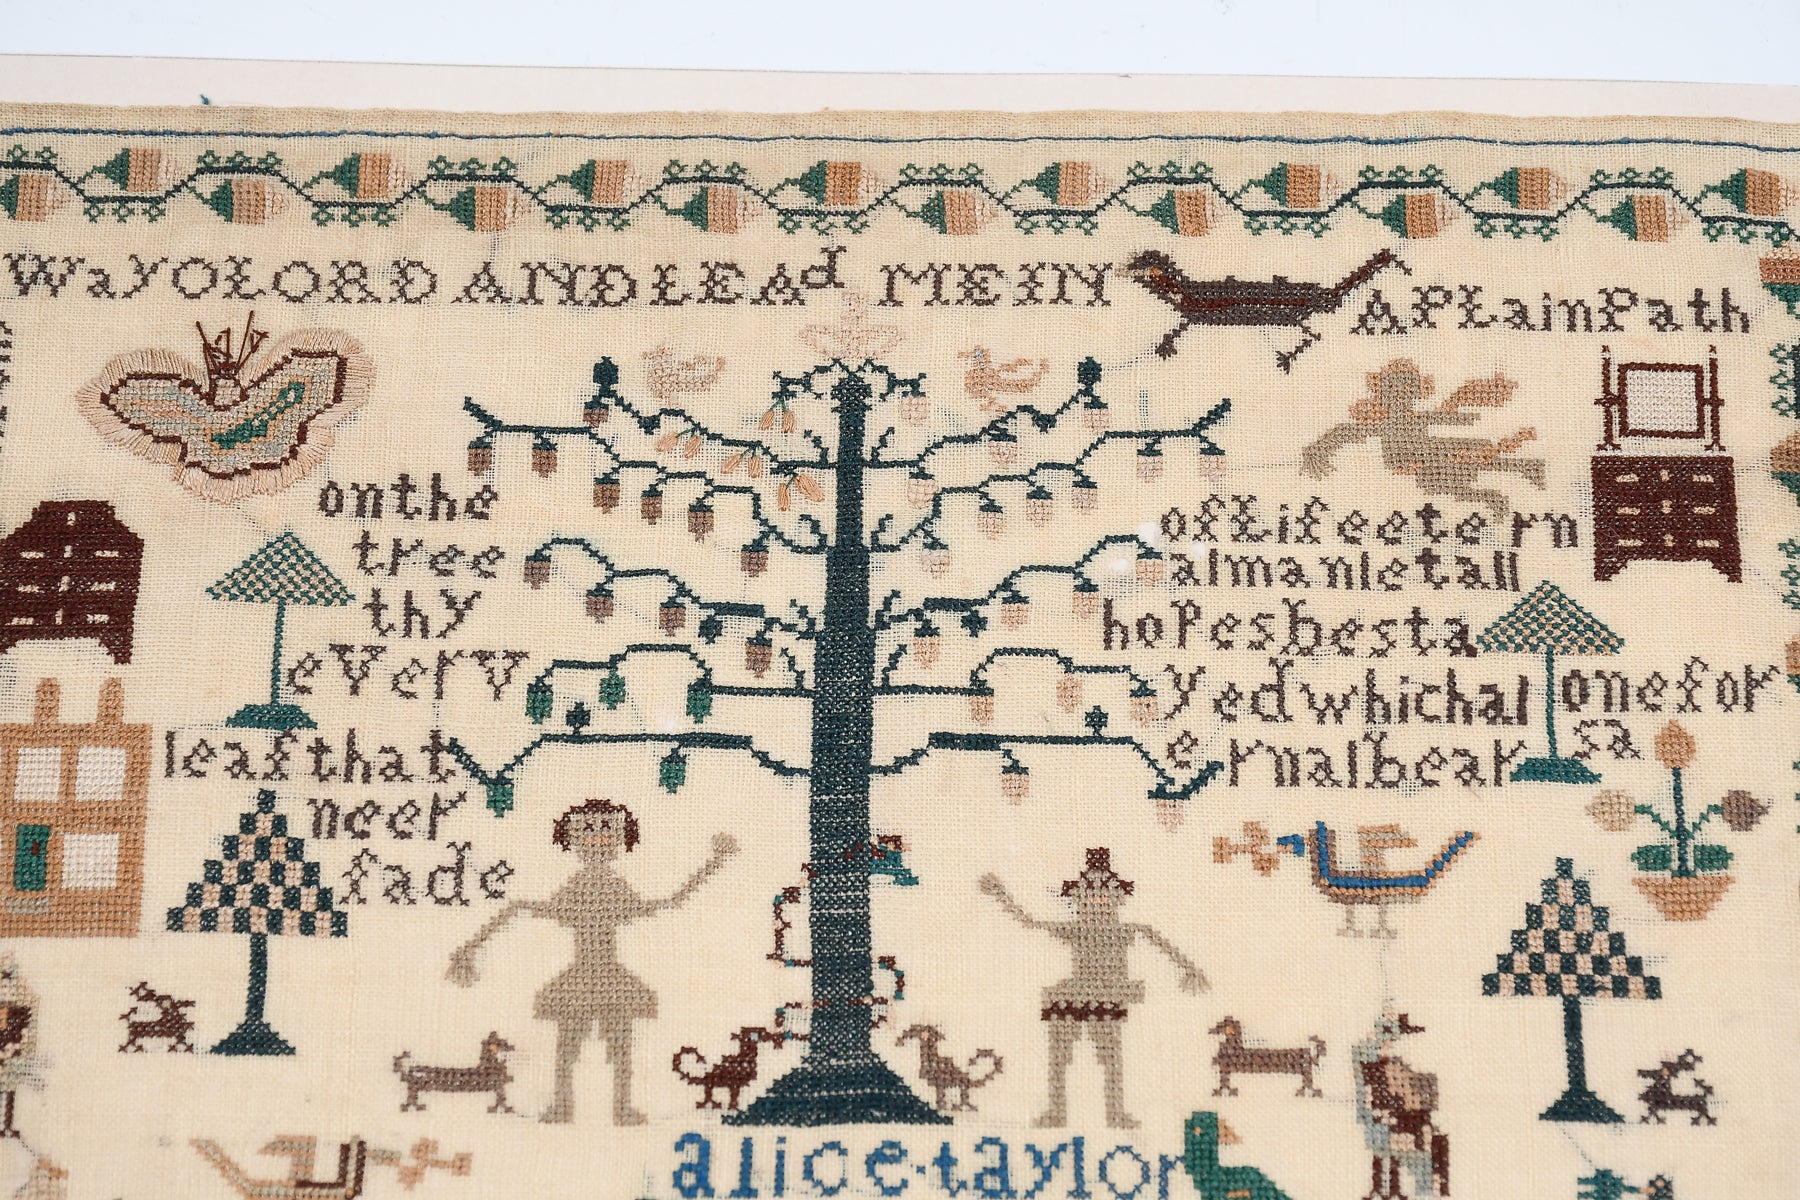 WayOLORD ANDLEAd MEIN APLainPath
onthe
tree
thy
every
leafthat
neer
fade
ofLifeetern
almanletall
hopesbesta
yedwhichalonefor
ernalbearsa
alice.taylor